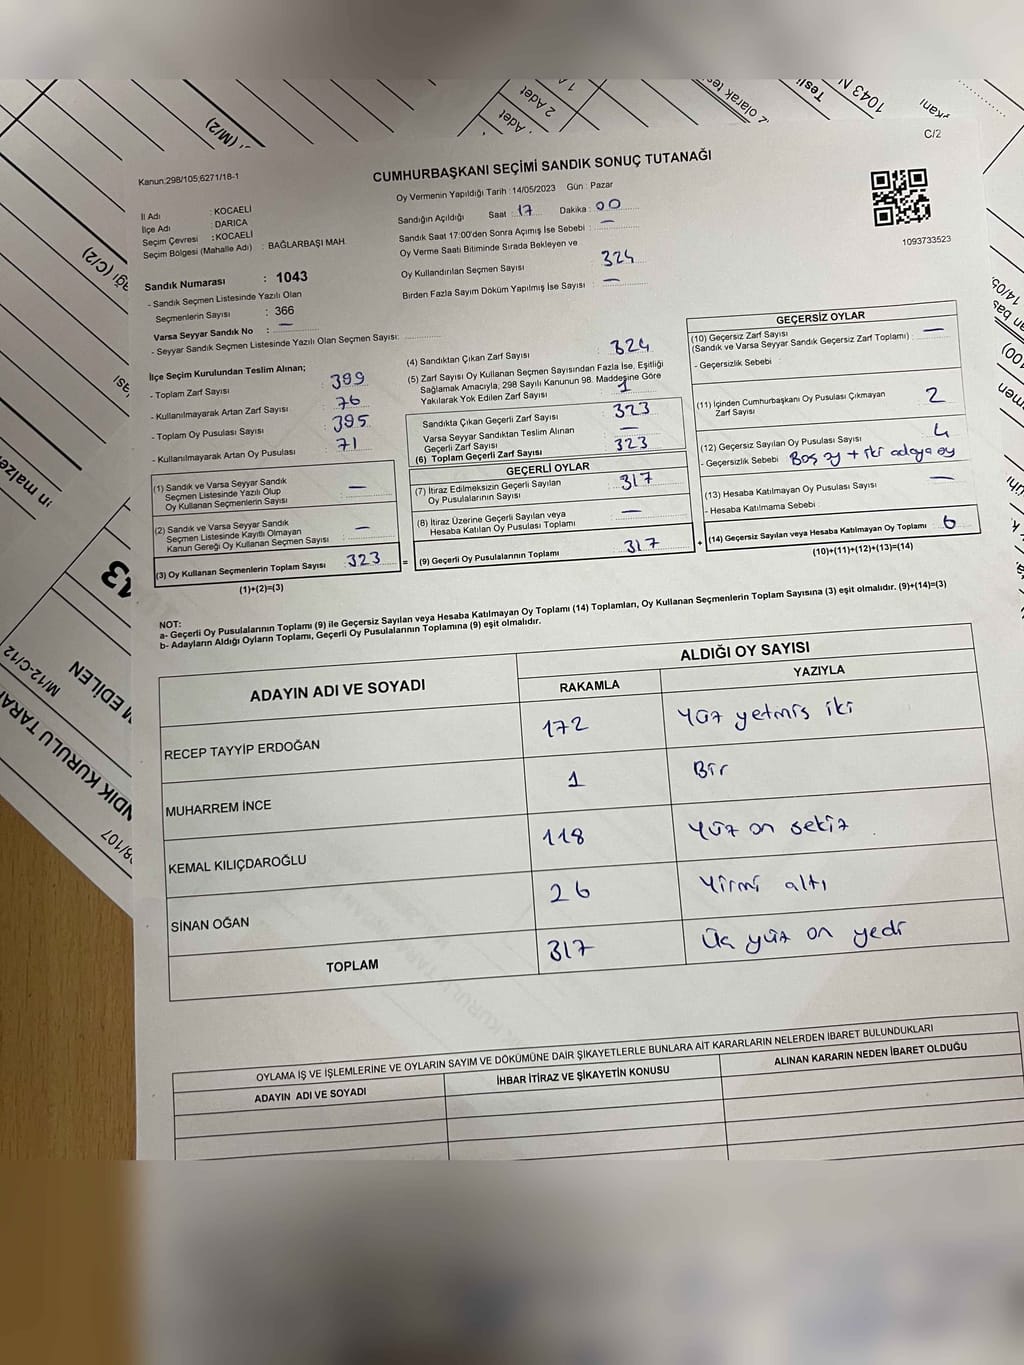 C/2
Kanun:298/105;6271/18-1
CUMHURBAŞKANI SEÇİMİ SANDIK SONUÇ TUTANAĞI
İl Adı : KOCAELİ
İlçe Adı : DARICA
Seçim Çevresi : KOCAELİ
Seçim Bölgesi (Mahalle Adı) : BAĞLARBAŞI MAH.
Oy Vermenin Yapıldığı Tarih : 14/05/2023 Gün : Pazar
Sandığın Açıldığı Saat : 17 Dakika : 00
Sandık Saat 17:00'den Sonra Açımış İse Sebebi : —
Oy Verme Saati Bitiminde Sırada Bekleyen ve
Oy Kullandırılan Seçmen Sayısı : 324
Birden Fazla Sayım Döküm Yapılmış İse Sayısı : —
1093733523
Sandık Numarası : 1043
- Sandık Seçmen Listesinde Yazılı Olan
Seçmenlerin Sayısı : 366
Varsa Seyyar Sandık No : —
- Seyyar Sandık Seçmen Listesinde Yazılı Olan Seçmen Sayısı:
İlçe Seçim Kurulundan Teslim Alınan;
- Toplam Zarf Sayısı : 399
- Kullanılmayarak Artan Zarf Sayısı : 76
- Toplam Oy Pusulası Sayısı : 395
- Kullanılmayarak Artan Oy Pusulası : 71
(1) Sandık ve Varsa Seyyar Sandık
Seçmen Listesinde Yazılı Olup
Oy Kullanan Seçmenlerin Sayısı : —
(2) Sandık ve Varsa Seyyar Sandık
Seçmen Listesinde Kayıtlı Olmayan
Kanun Gereği Oy Kullanan Seçmen Sayısı : —
(3) Oy Kullanan Seçmenlerin Toplam Sayısı : 323
(1)+(2)=(3)
(4) Sandıktan Çıkan Zarf Sayısı : 324
(5) Zarf Sayısı Oy Kullanan Seçmen Sayısından Fazla İse, Eşitliği
Sağlamak Amacıyla, 298 Sayılı Kanunun 98. Maddesine Göre
Yakılarak Yok Edilen Zarf Sayısı : 1
Sandıkta Çıkan Geçerli Zarf Sayısı : 323
Varsa Seyyar Sandıktan Teslim Alınan
Geçerli Zarf Sayısı : —
(6) Toplam Geçerli Zarf Sayısı : 323
GEÇERLİ OYLAR
(7) İtiraz Edilmeksizin Geçerli Sayılan
Oy Pusulalarının Sayısı : 317
(8) İtiraz Üzerine Geçerli Sayılan veya
Hesaba Katılan Oy Pusulası Toplamı : —
= (9) Geçerli Oy Pusulalarının Toplamı : 317
GEÇERSİZ OYLAR
(10) Geçersiz Zarf Sayısı
(Sandık ve Varsa Seyyar Sandık Geçersiz Zarf Toplamı) : —
- Geçersizlik Sebebi :
(11) İçinden Cumhurbaşkanı Oy Pusulası Çıkmayan
Zarf Sayısı : 2
(12) Geçersiz Sayılan Oy Pusulası Sayısı : 4
- Geçersizlik Sebebi : Boş oy + iki adaya oy
(13) Hesaba Katılmayan Oy Pusulası Sayısı : —
- Hesaba Katılmama Sebebi :
+ (14) Geçersiz Sayılan veya Hesaba Katılmayan Oy Toplamı : 6
(10)+(11)+(12)+(13)=(14)
NOT:
a- Geçerli Oy Pusulalarının Toplamı (9) ile Geçersiz Sayılan veya Hesaba Katılmayan Oy Toplamı (14) Toplamları, Oy Kullanan Seçmenlerin Toplam Sayısına (3) eşit olmalıdır. (9)+(14)=(3)
b- Adayların Aldığı Oyların Toplamı, Geçerli Oy Pusulalarının Toplamına (9) eşit olmalıdır.
ADAYIN ADI VE SOYADI
ALDIĞI OY SAYISI
RAKAMLA YAZIYLA
RECEP TAYYİP ERDOĞAN 172 Yüz yetmiş iki
MUHARREM İNCE 1 Bir
KEMAL KILIÇDAROĞLU 118 Yüz on sekiz
SİNAN OĞAN 26 Yirmi altı
TOPLAM 317 Üç yüz on yedi
OYLAMA İŞ VE İŞLEMLERİNE VE OYLARIN SAYIM VE DÖKÜMÜNE DAİR ŞİKAYETLERLE BUNLARA AİT KARARLARIN NELERDEN İBARET BULUNDUKLARI
ADAYIN ADI VE SOYADI İHBAR İTİRAZ VE ŞİKAYETİN KONUSU ALINAN KARARIN NEDEN İBARET OLDUĞU
(M/2)
2 Adet
Adet
olarak
1043
(C/2)
M EDİLEN
M/12-C/12
NDIK KURULU TARA